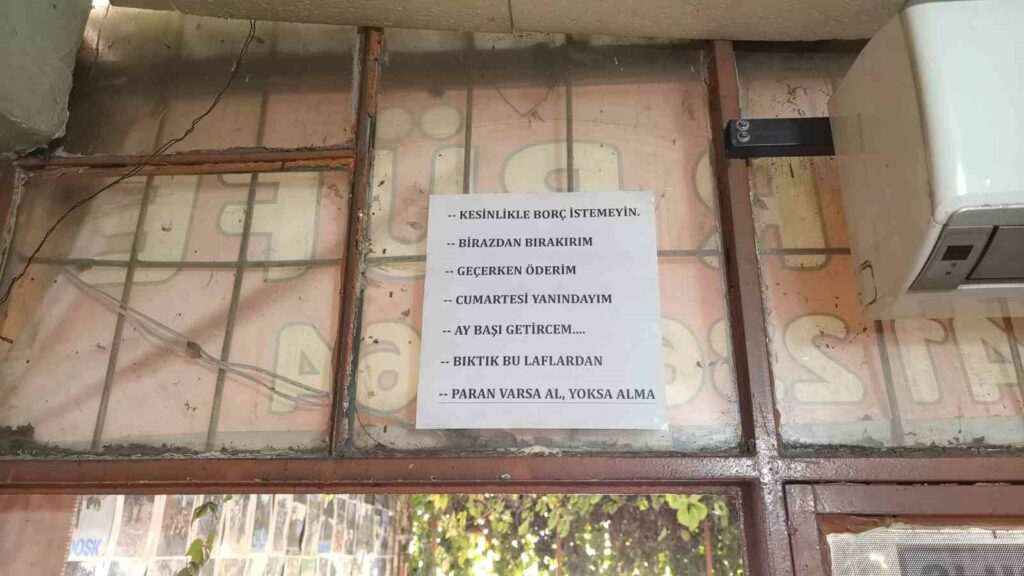 -- KESİNLİKLE BORÇ İSTEMEYİN.
-- BİRAZDAN BIRAKIRIM
-- GEÇERKEN ÖDERİM
-- CUMARTESİ YANINDAYIM
-- AY BAŞI GETİRCEM....
-- BIKTIK BU LAFLARDAN
-- PARAN VARSA AL, YOKSA ALMA